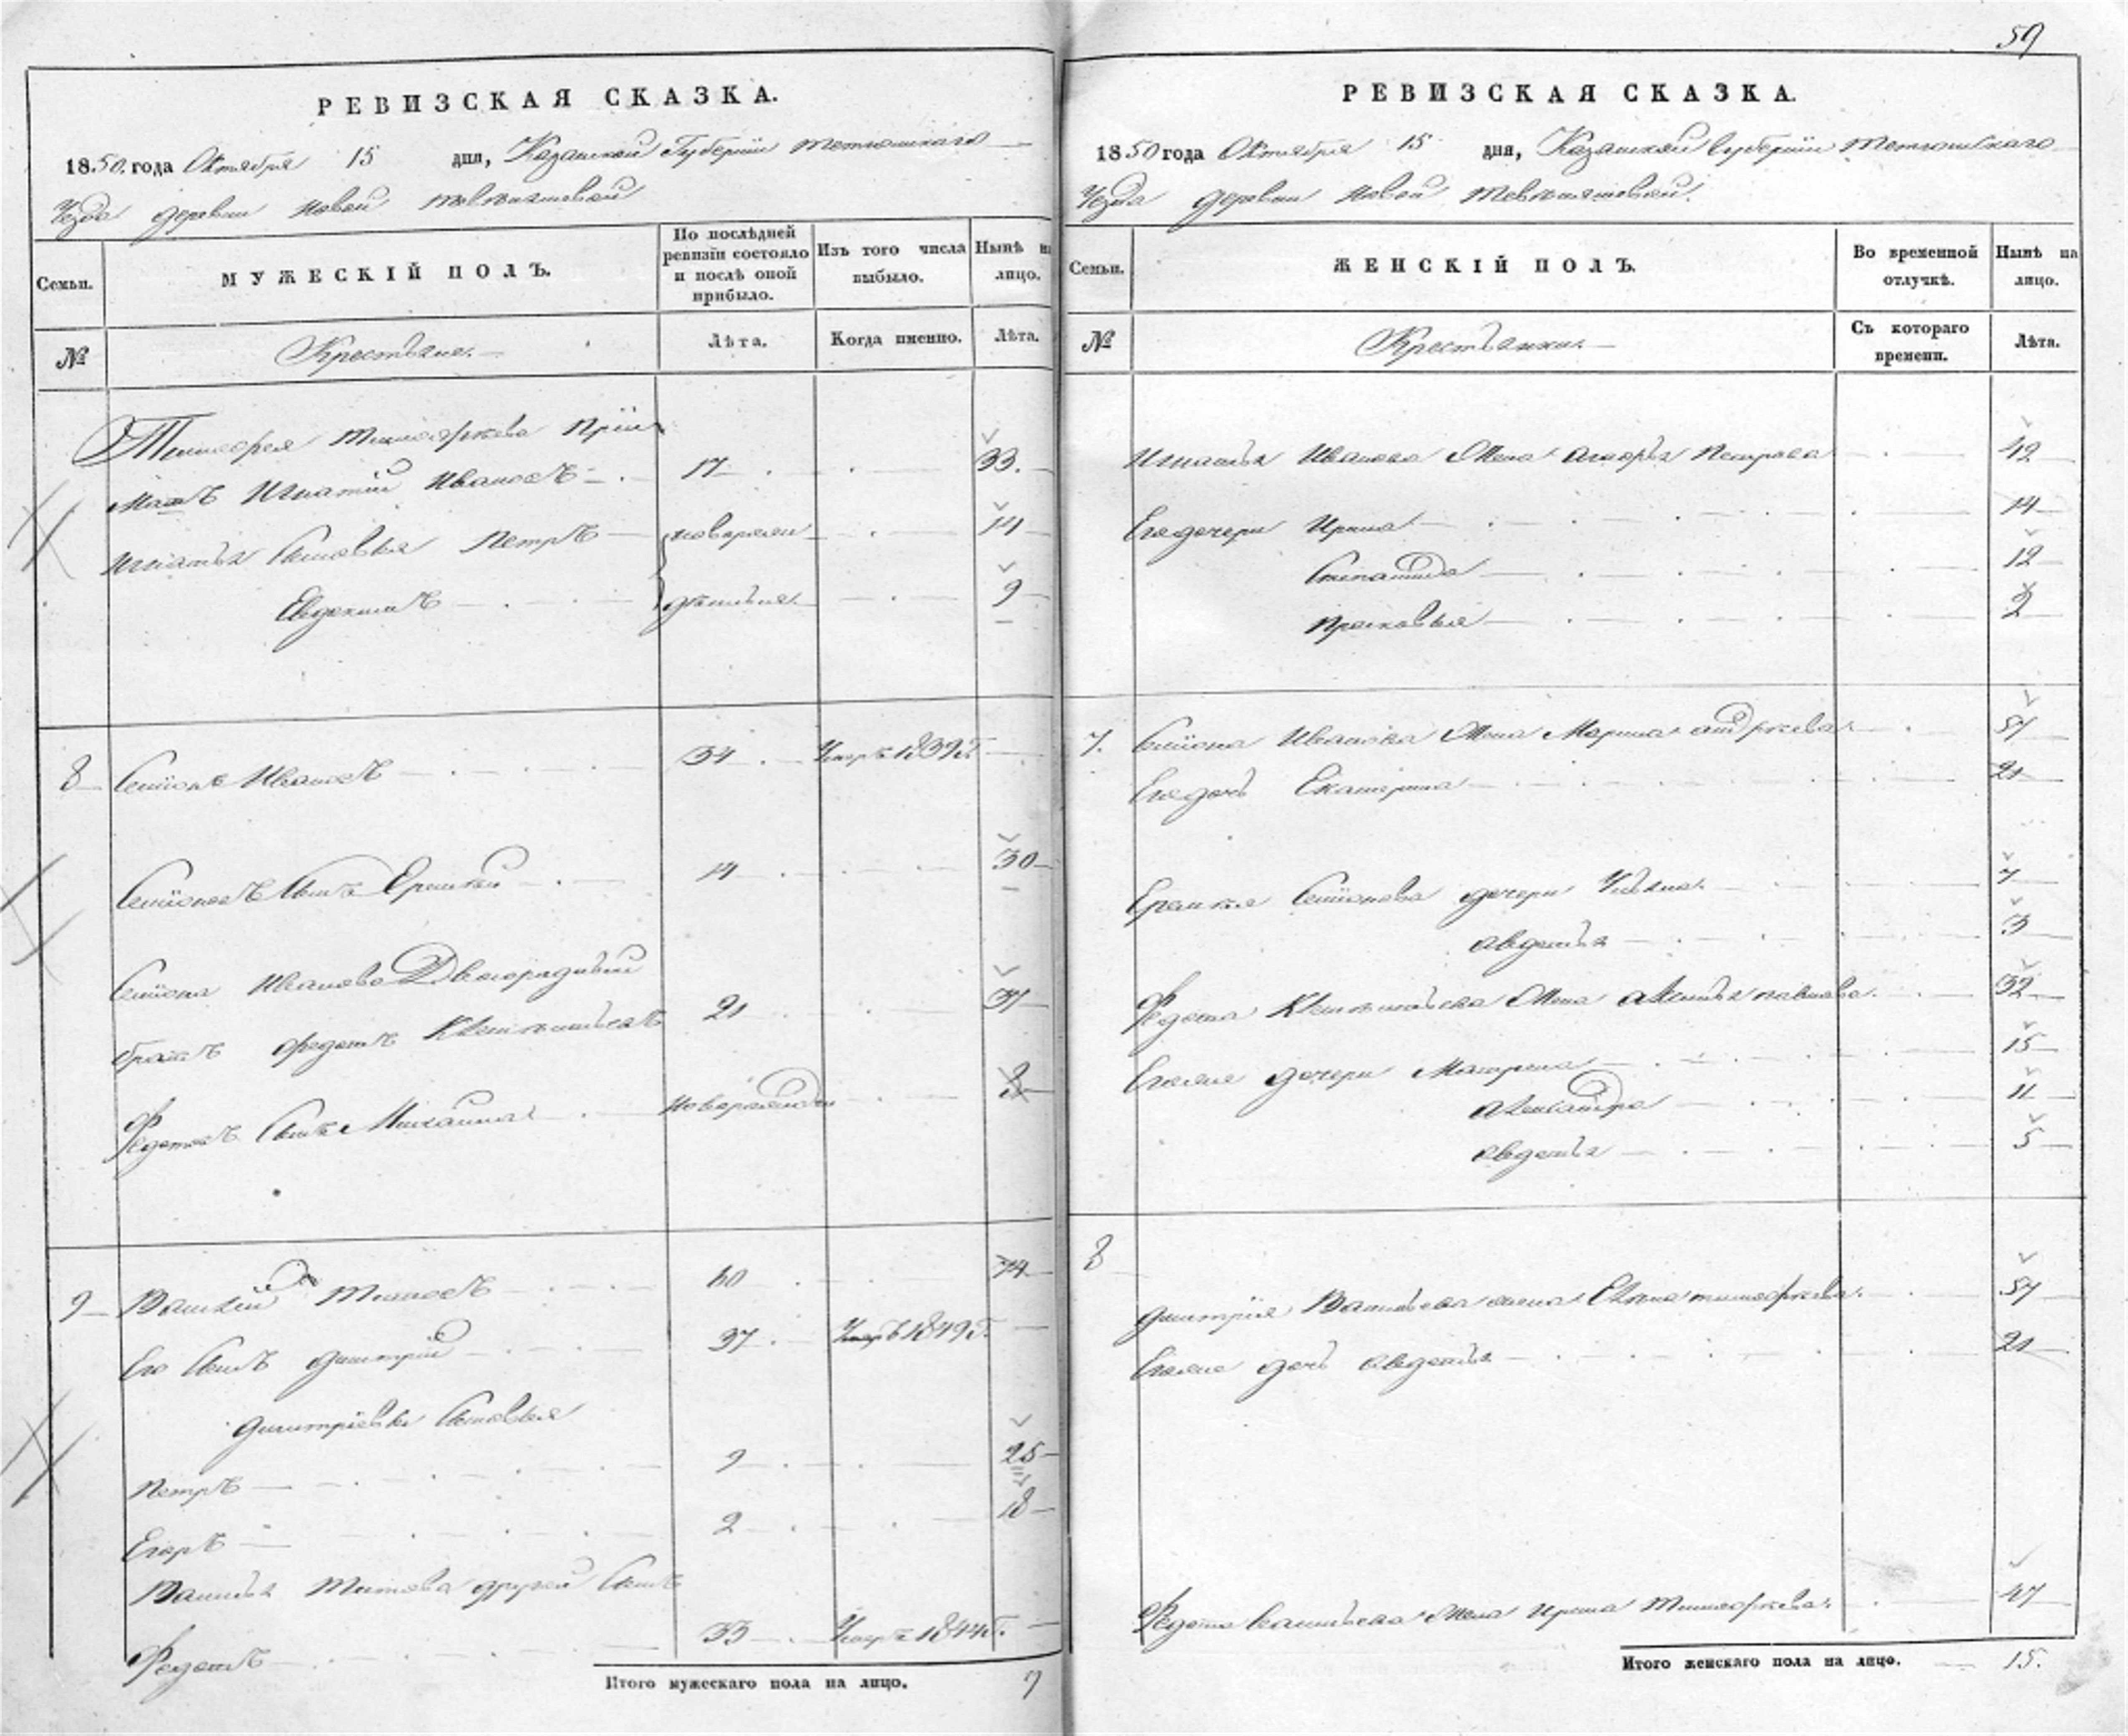 РЕВИЗСКАЯ СКАЗКА.
1850 года Октября 15 дня, Казанской Губернии Тетюшскаго
Уезда деревни Новой
Семьи.
МУЖЕСКІЙ ПОЛЪ.
По послѣдней ревизіи состояло и послѣ оной прибыло.
Изъ того числа выбыло.
Нынѣ на лицо.
№
Крестьяне.
Лѣта.
Когда именно.
Лѣта.
Тимофея Тимофѣева Пріи
Игнатій Ивановъ 17 33.
Игнатья Сыновья Петръ новорож 14
Евдокимъ денные 9
8 Семіонъ Ивановъ 34 Умеръ 1839 г.
Семіоновъ Сынъ Еремѣй 14 30
Семіона Иванова Двоюродный
братъ Федотъ 21 37
Федотовъ Сынъ Михайла новорожден 2
9 Василій Титовъ 60 74
Его Сынъ Дмитрій 37 Умеръ 1849 г.
Дмитріевы Сыновья
Петръ 9 25
Егоръ 2 18
Василья Титова другой Сынъ
Федотъ 33 Умеръ 1844 г.
Итого мужескаго пола на лицо. 7
59
РЕВИЗСКАЯ СКАЗКА.
1850 года Октября 15 дня, Казанской Губерніи Тетюшскаго
Уезда деревни Новой
Семьи.
ЖЕНСКІЙ ПОЛЪ.
Во временной отлучкѣ.
Нынѣ на лицо.
№
Крестьянки.
Съ котораго времени.
Лѣта.
Игнатья Иванова Жена Петрова 42
Его дочери Ирина 14
Степанида 12
Прасковья 2
7. Семіона Иванова Жена Марина Андрѣева 57
Его дочь Екатерина 21
Еремѣя Семіонова дочери Ульяна 7
Авдотья 3
Федота Жена 32
Его же дочери Матрена 15
Александра 11
Авдотья 5
8
Дмитрія Васильева жена Елена Тимофѣева. 57
Его же дочь Авдотья 21
Федота Васильева Жена Ирина Тимофѣева. 47
Итого женскаго пола на лицо. 15.